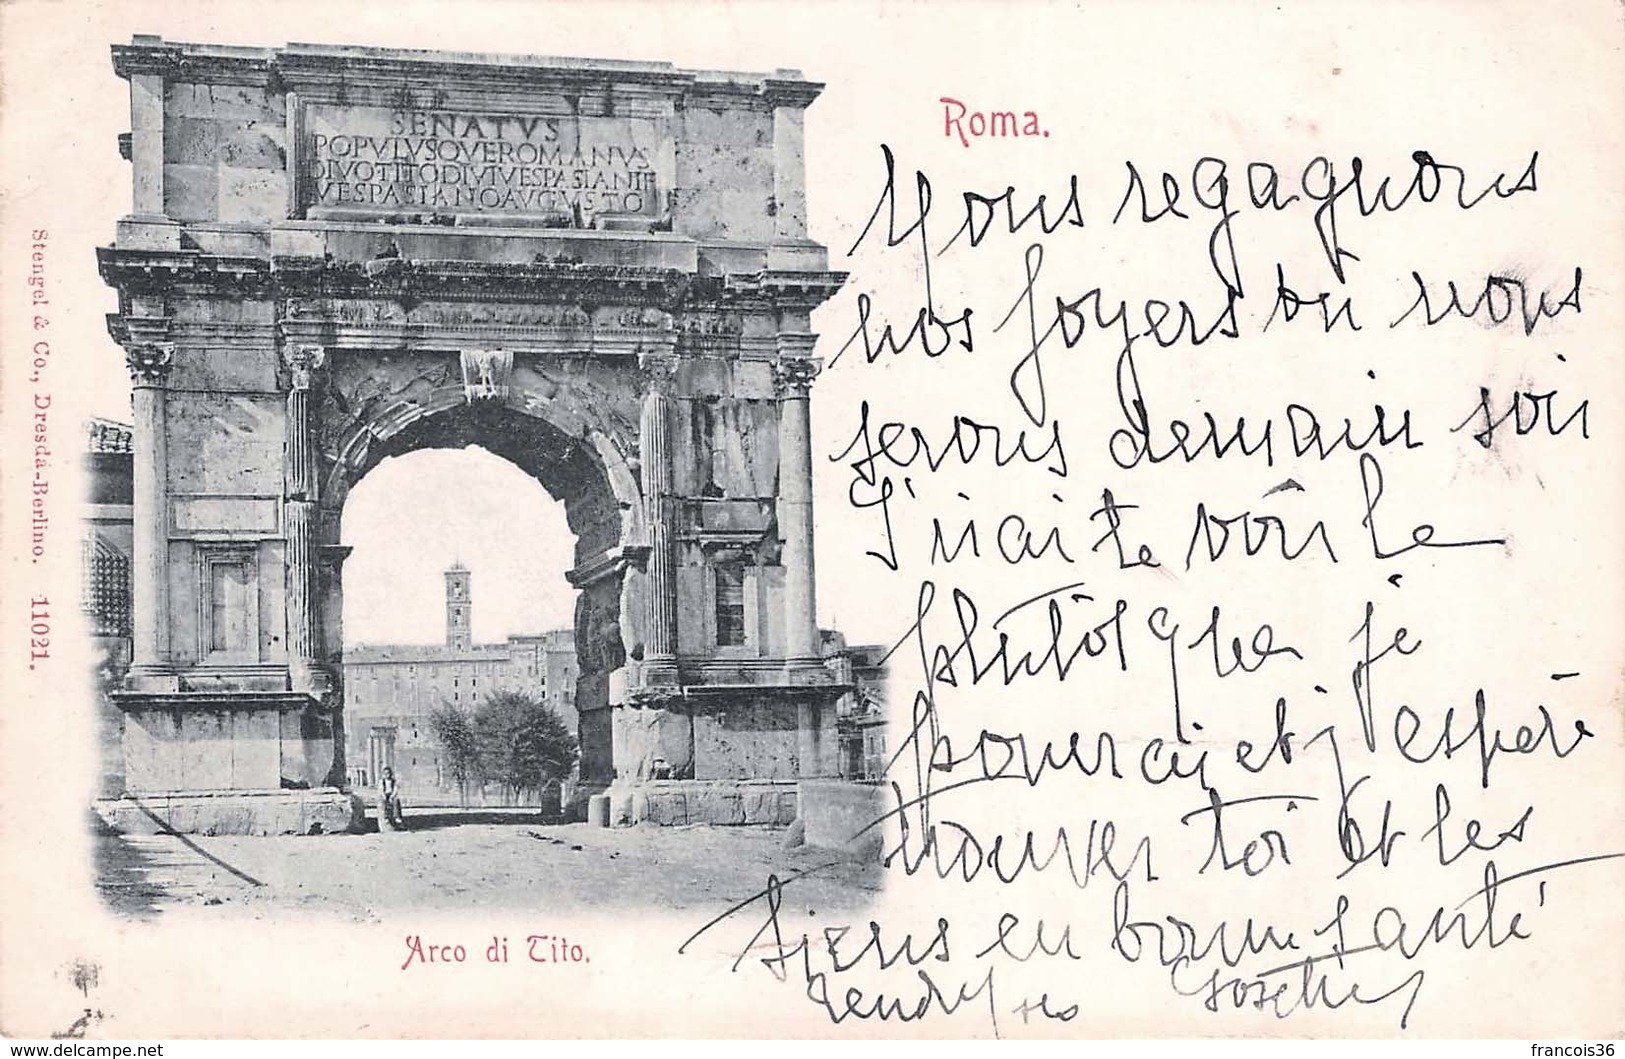 SENATVS
POPVLVSQVEROMANVS
DIVOTITODIVIVESPASIANIF
VESPASIANOAVGVSTO
Roma.
Nous regagnons
nos foyers où nous
serons demain soir
J'irai te voir le
plutôt que je
pourrai et j'espère
trouver toi et les
tiens en bonne santé
Arco di Tito.
Stengel & Co., Dresda-Berlino. 11021.
delcampe.net
francois36